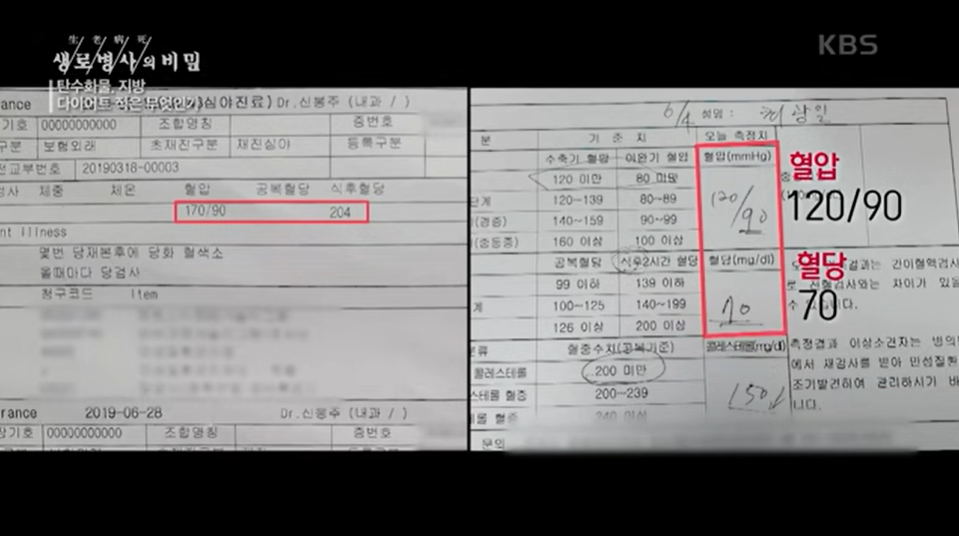 生老病死
생로병사의 비밀
탄수화물, 지방
다이어트 적은 무엇인가
KBS
rance
심야진료) Dr.신봉주 (내과 / )
기호 00000000000 조합명칭 증번호
구분 보험외래 초재진구분 재진심야 등록구분
전교부번호 20190318-00003
검사 체중 체온 혈압 공복혈당 식후혈당
170/90 204
nt Illness
몇번 당재본후에 당화 혈색소
올때마다 당검사
청구코드 Item
urance 2019-06-28 Dr.신봉주 (내과 / )
장기호 00000000000 조합명칭 증번호
6/4 성명 :
분 기 준 치 오늘 측정치
수축기 혈압 이완기 혈압 혈압(mmHg)
120 미만 80 미만
단계 120~139 80~89
(경증) 140~159 90~99
(중등증) 160 이상 100 이상
120/90
공복혈당 식후2시간 혈당 혈당(mg/dl)
99 이하 139 이하
계 100~125 140~199
126 이상 200 이상
70
분류 혈중수치(공복기준) 콜레스테롤(mg/dl)
콜레스테롤 200 미만
스테롤 혈증 200~239
테롤 혈증 240 이상
150
문의
혈압
120/90
혈당
70
결과는 간이혈액검사
검사와는 차이가 있을
수 있습니다.
측정결과 이상소견자는 병의
에서 재검사를 받아 만성질환
조기발견하여 관리하시기 바
니다.